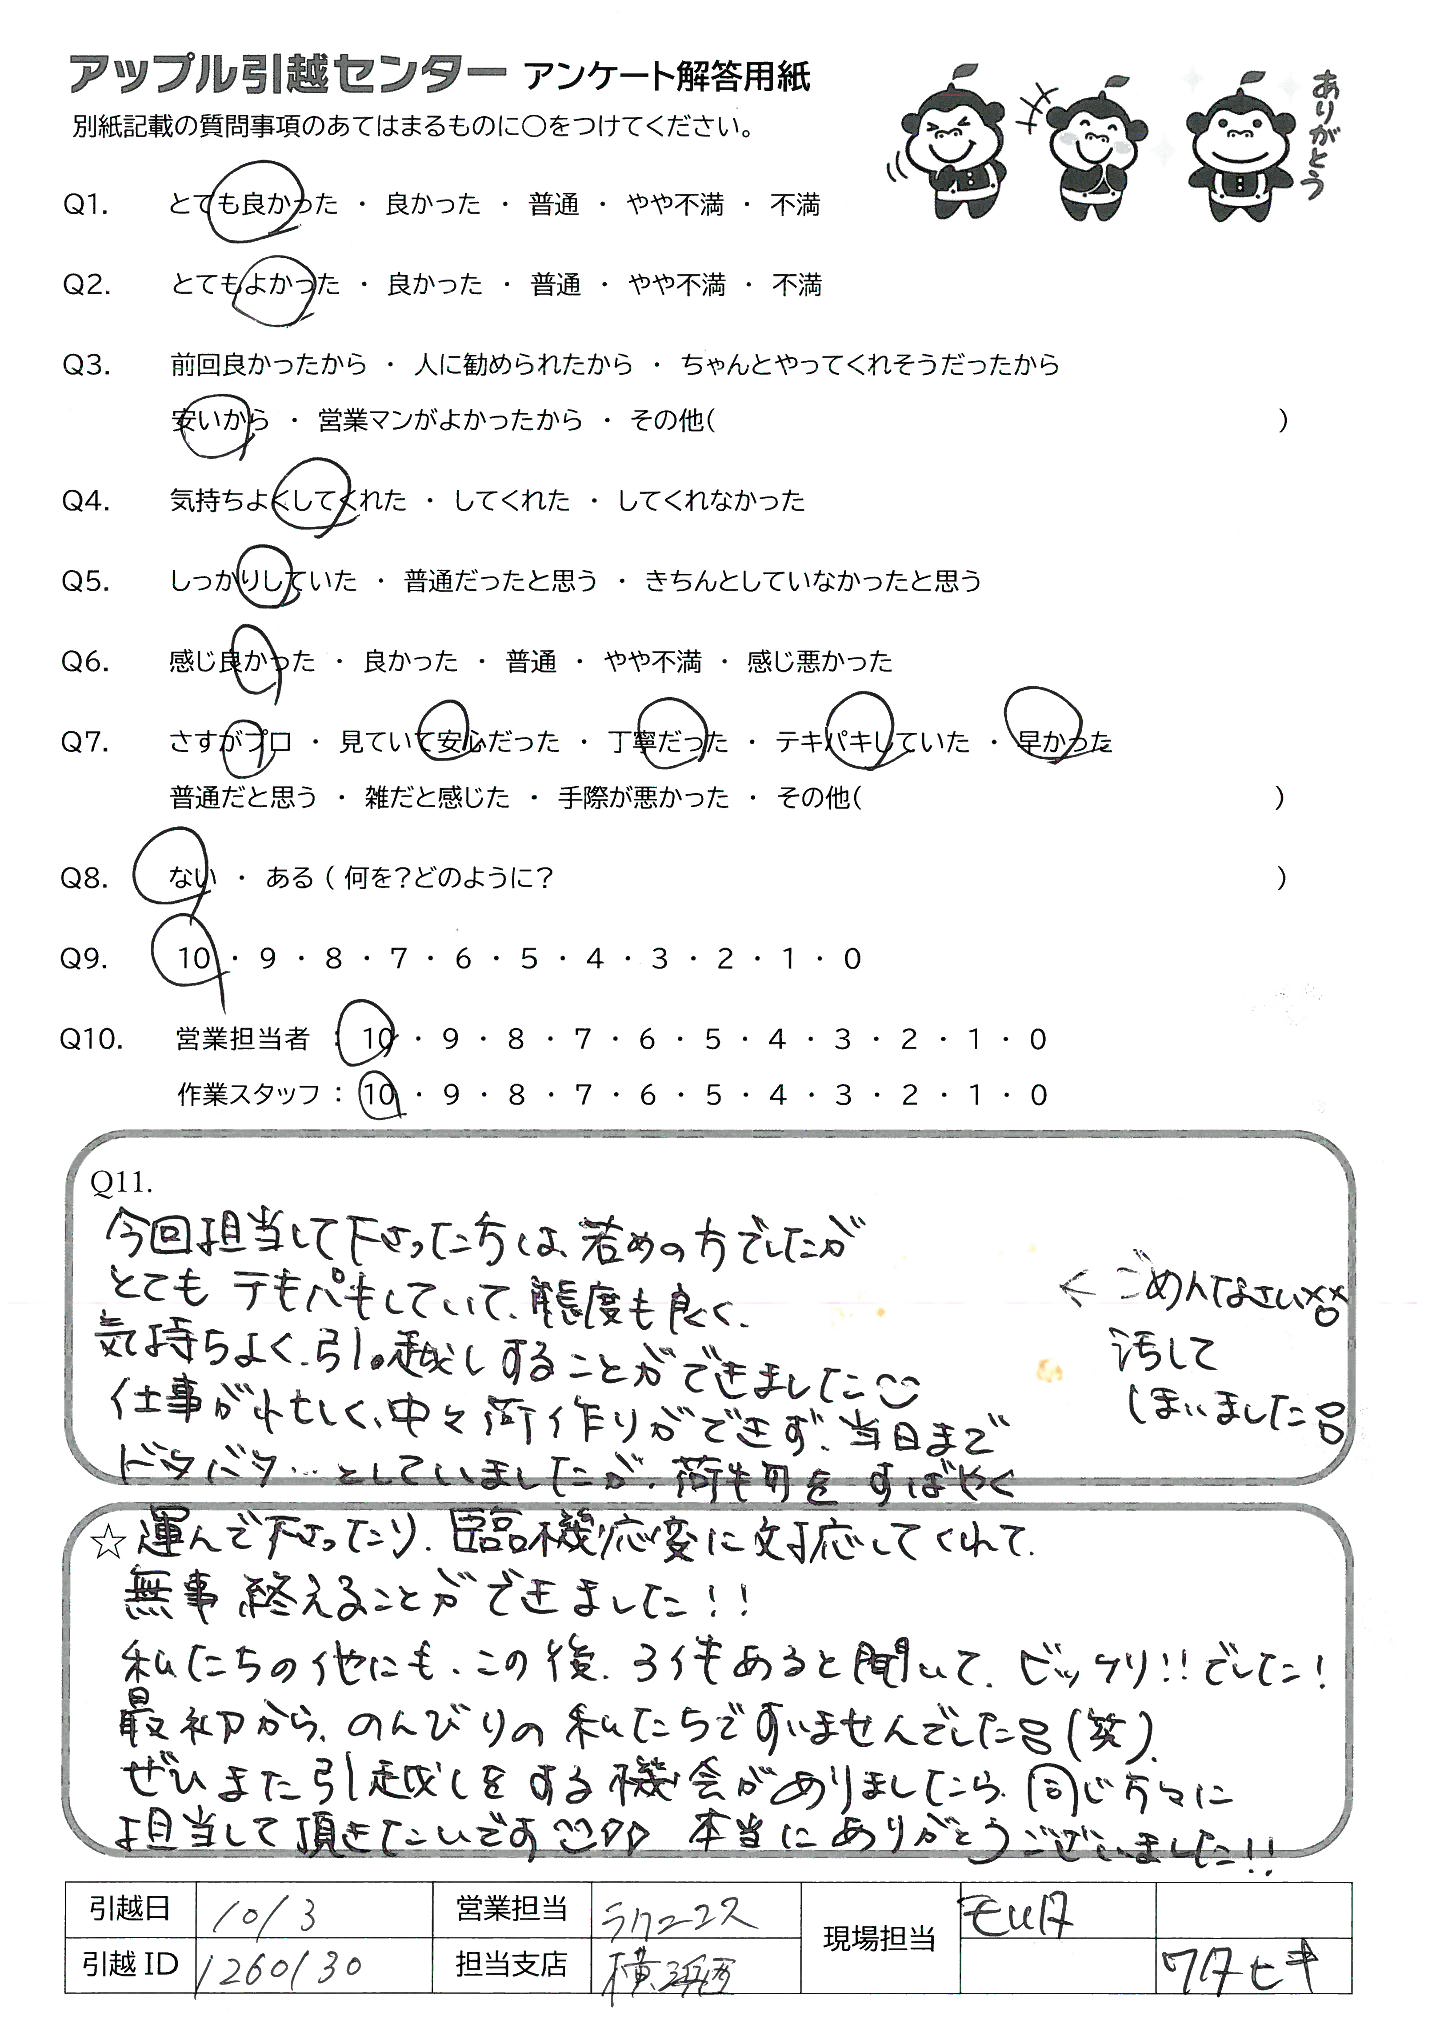 アップル引越センター アンケート解答用紙
ありがとう
別紙記載の質問事項のあてはまるものに○をつけてください。
Q1. とても良かった ・ 良かった ・ 普通 ・ やや不満 ・ 不満
Q2. とてもよかった ・ 良かった ・ 普通 ・ やや不満 ・ 不満
Q3. 前回良かったから ・ 人に勧められたから ・ ちゃんとやってくれそうだったから
安いから ・ 営業マンがよかったから ・ その他( )
Q4. 気持ちよくしてくれた ・ してくれた ・ してくれなかった
Q5. しっかりしていた ・ 普通だったと思う ・ きちんとしていなかったと思う
Q6. 感じ良かった ・ 良かった ・ 普通 ・ やや不満 ・ 感じ悪かった
Q7. さすがプロ ・ 見ていて安心だった ・ 丁寧だった ・ テキパキしていた ・ 早かった
普通だと思う ・ 雑だと感じた ・ 手際が悪かった ・ その他( )
Q8. ない ・ ある ( 何を?どのように? )
Q9. 10 ・ 9 ・ 8 ・ 7 ・ 6 ・ 5 ・ 4 ・ 3 ・ 2 ・ 1 ・ 0
Q10. 営業担当者 : 10 ・ 9 ・ 8 ・ 7 ・ 6 ・ 5 ・ 4 ・ 3 ・ 2 ・ 1 ・ 0
作業スタッフ : 10 ・ 9 ・ 8 ・ 7 ・ 6 ・ 5 ・ 4 ・ 3 ・ 2 ・ 1 ・ 0
Q11.
今回担当して下さった方は、若めの方でしたが
とても テキパキしていて、態度も良く、
気持ちよく、引っ越しすることができました
仕事が忙しく、中々荷作りができず、当日まで
ドタバタ…としていましたが、荷物を すばやく
← ごめんなさい
汚して
しまいました
☆運んで下さったり、臨機応変に対応してくれて、
無事 終えることができました!!
私たちの他にも、この後、3件もあると聞いて、ビックリ!!でした!
最初から、のんびりの 私たちですいませんでした(笑)、
ぜひまた引越しをする機会がありましたら、同じ方々に
担当して頂きたいです♡♡ 本当にありがとうございました!!
引越日 10/3 営業担当 現場担当
引越ID 1260130 担当支店 横浜西 ワタヒキ